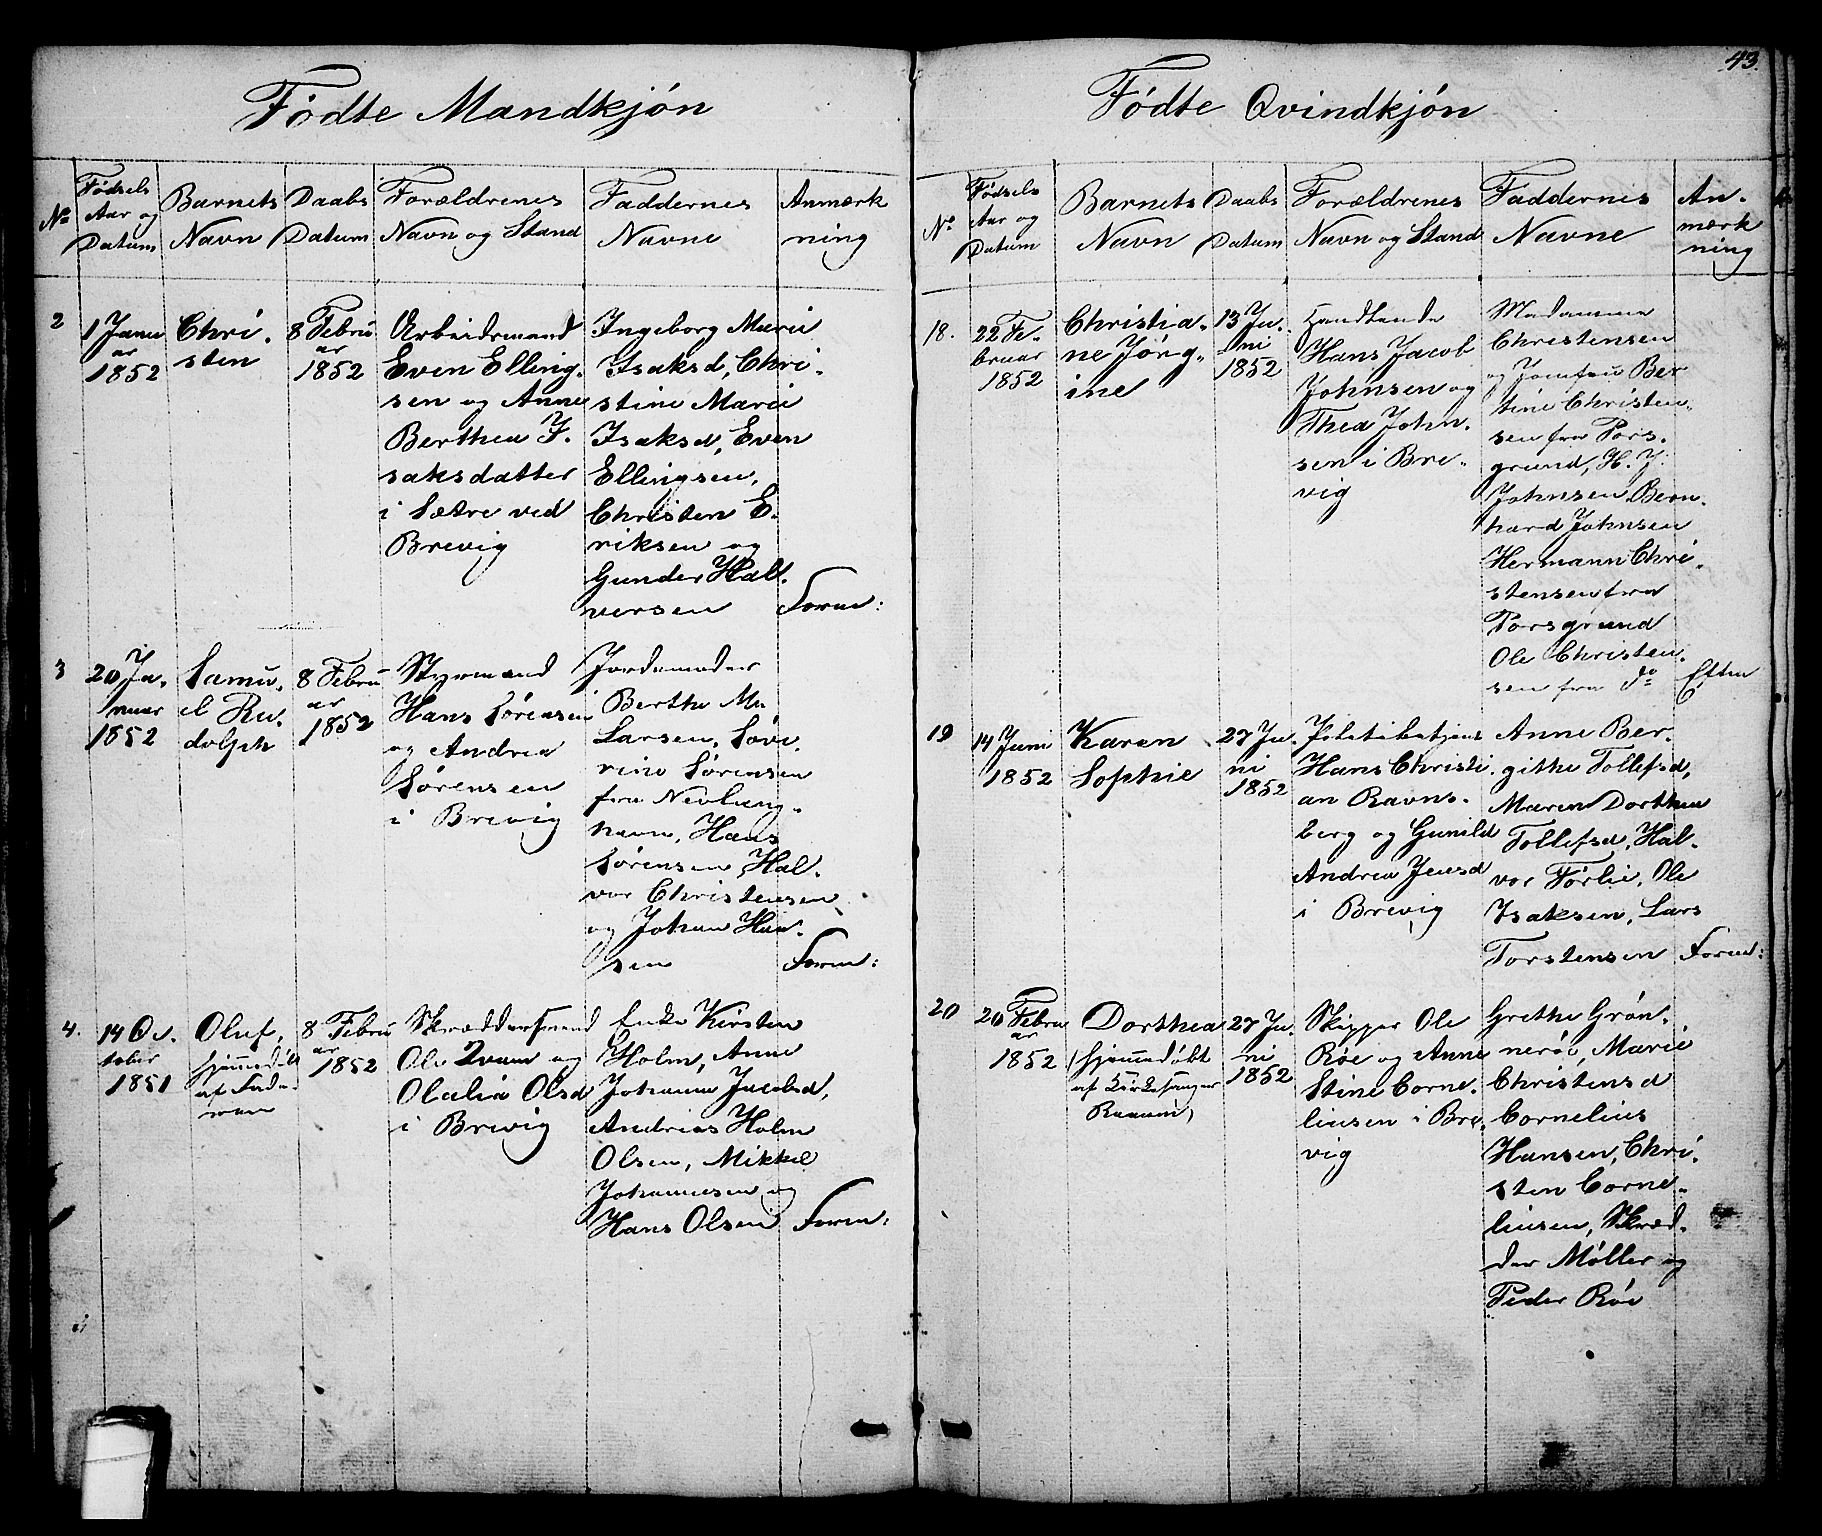 43.
Fødte Mandkjón
No
Fødsels Aar og Datum
Barnets Navn
Daabs Datum
Forældrenes Navn og Stand
Faddernes Navne
Anmærk ning
2
1 Janu
ar
1852
Chri.
sten
8 Febru
ar
1852
Arbeidsmand
Even Elling,
sen og Anne
Berthea I.
saksdatter
i Sætre ved
Brevig
Ingeborg Marie
Isaksd, Chri.
stine Marie
Isaksd, Even
Ellingsen,
Christen E.
riksen og
Gunder Hal.
versen
Form:
3
20 Ja.
nuar
1852
Samu.
el Ru.
dolph
8 Febru
ar
1852
Styrmand
Hans Sørensen
og Andrea
Sørensen
i Brevig
Jordemoder
Berthe Ma
Larsen, Seve.
rine Sørensen
fra Nevlung,
havn, Hans
Sørensen, Hal.
vor Christensen
og Johan Han.
sen
Form:
4.
14 Oc.
tober
1851
Oluf,
hjemmedøbt
af Fade.
ren
8 Febru
ar
1852
Skrædder
Ole og
Olalia Olsd
i Brevig
Kirsten
Holm, Anne
Johanne Jacobsd,
Andrias Holm
Olsen, Mikkel
Johannesen og
Hans Olsen
Form:
Fødte Qvindkjón
No
Fødsels Aar og Datum
Barnets Navn
Daabs Datum
Forældrenes Navn og Stand
Faddernes Navne
An- mærk ning
18.
22 Fe.
bruar
1852
Christia.
ne Jørg,
ine
13 Ju.
ni
1852
Handlende
Hans Jacob
Johnsen og
Thea John.
sen i Bre.
vig
Madamme
Christensen
og Jomfru Ber
tine Christen,
sen fra Pors.
grund, H. J.
Johnsen Bern.
hard Johnsen
Hermann Chri.
stensen fra
Porsgrund
Ole Christen.
sen fra do
Efterm
19
14 Juni
1852
Karen
Sophie
27 Ju.
ni
1852
Politibetjent
Hans Christi.
an Ravns.
berg og Gunild
Andrea Jensd
i Brevig
Anne Ber.
githe Tollefsd,
Maren Dorthea
Tollefsd, Hal.
vor Førlie, Ole
Isaksen, Lars
Torstensen
Form:
20
20 Febru
ar
1852
Dorthea
(hjemmedøbt
af Kirkesanger
Raaum)
27 Ju.
ni
1852
Skipper Ole
Røe og Anne
Stine Corne.
liusen i Bre.
vig
Grethe Grøn.
nerøe, Marie
Christensd
Cornelius
Hansen, Chri.
sten Corne.
liusen, Skræd.
der Møller og
Peder Røe